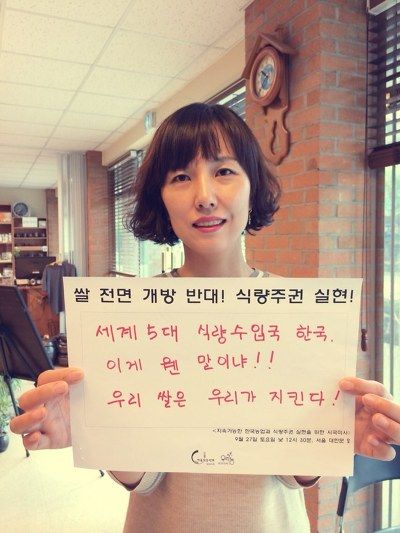 쌀 전면 개방 반대! 식량주권 실현!
세계 5대 식량수입국 한국.
이게 웬 말이냐!!
우리 쌀은 우리가 지킨다!
<지속가능한 한국농업과 식량주권 실현을 위한 시국미사>
9월 27일 토요일 낮 12시 30분, 서울 대한문 앞